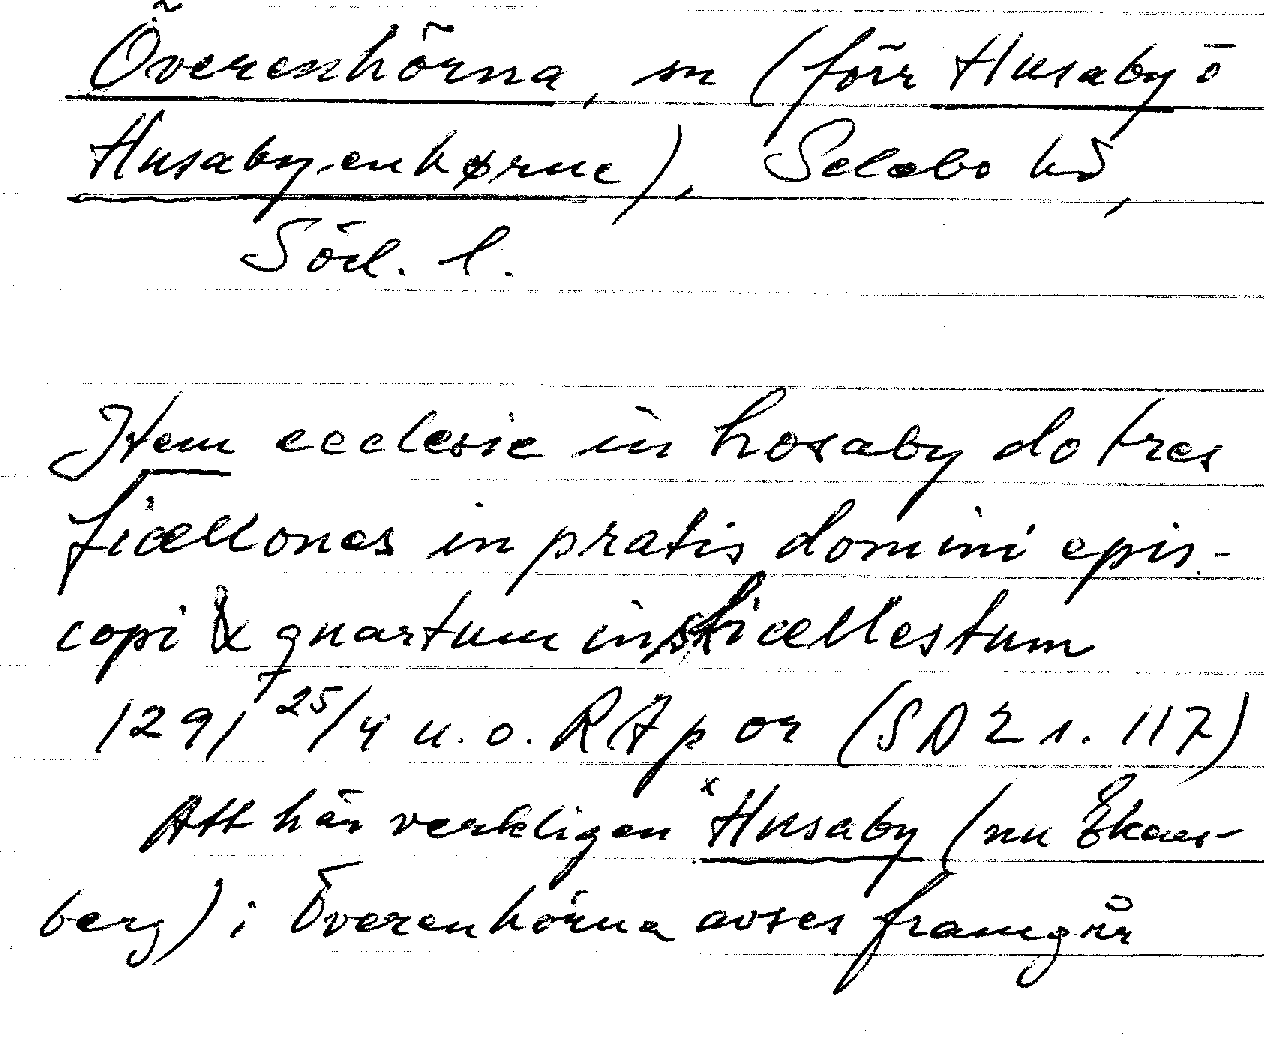 Överenhörna, sn (förr Husaby ö
Husabyenhørne), Selebo hd,
Södl. l.
Item ecclesie in hosaby do tres
ficællones in pratis domini epis-
copi & quartum in sticællestum
1291 25/4 u.o. RAp or (SD 2 s. 117)
Att här verkligen *Husaby (nu Ekens-
berg) i Överenhörna avses framgår